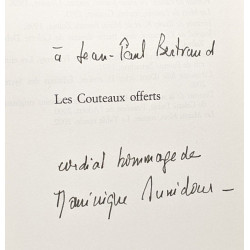 à Jean-Paul Bertrand
Les Couteaux offerts
cordial hommage de
Dominique